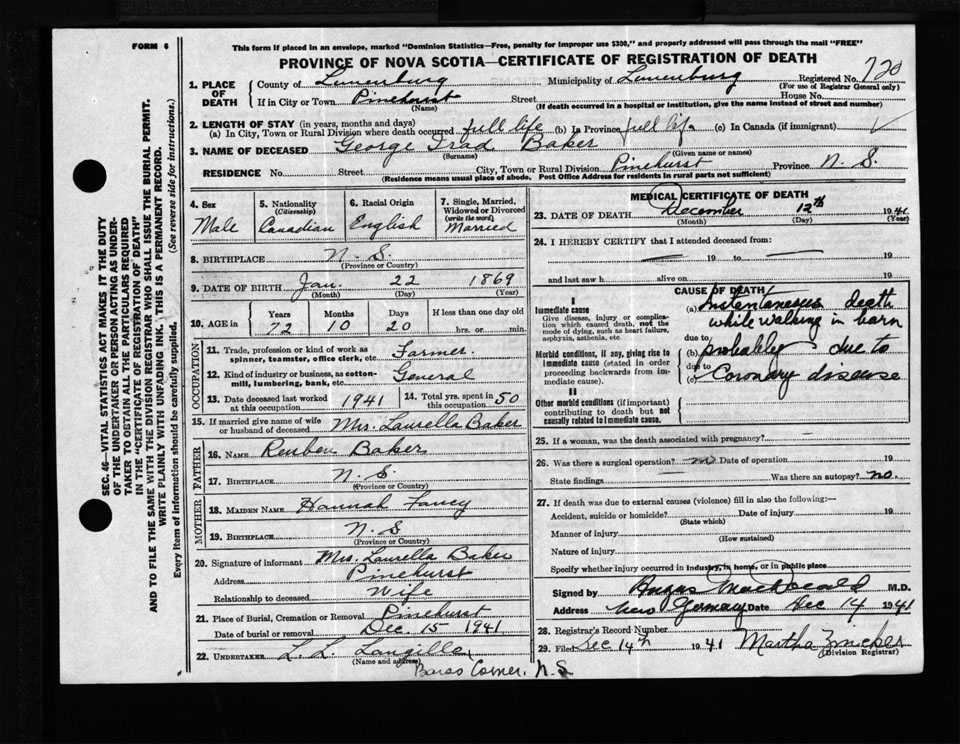 FORM 6
This form if placed in an envelope, marked "Dominion Statistics—Free, penalty for improper use $300," and properly addressed will pass through the mail "FREE"
PROVINCE OF NOVA SCOTIA—CERTIFICATE OF REGISTRATION OF DEATH
1. PLACE OF DEATH County of Lunenburg Municipality of Lunenburg Registered No. 720
(For use of Registrar General only)
If in City or Town Pinehurst Street House No.
(Name) (If death occurred in a hospital or institution, give the name instead of street and number)
2. LENGTH OF STAY (in years, months and days)
(a) In City, Town or Rural Division where death occurred full life (b) In Province full life (c) In Canada (if immigrant)
3. NAME OF DECEASED George Baker
(Surname) (Given name or names)
RESIDENCE No. Street City, Town or Rural Division Pinehurst Province N. S.
(Residence means usual place of abode. Post Office Address for residents in rural parts not sufficient)
4. Sex 5. Nationality (Citizenship) 6. Racial Origin 7. Single, Married, Widowed or Divorced (write the word)
Male Canadian English Married
8. BIRTHPLACE N. S.
(Province or Country)
9. DATE OF BIRTH Jan. 22 1869
(Month) (Day) (Year)
10. AGE in Years Months Days If less than one day
72 10 20 hrs. or min.
OCCUPATION
11. Trade, profession or kind of work as spinner, teamster, office clerk, etc. Farmer.
12. Kind of industry or business, as cotton-mill, lumbering, bank, etc. General
13. Date deceased last worked at this occupation 1941 14. Total yrs. spent in this occupation 50
15. If married give name of wife or husband of deceased Mrs. Laurella Baker
FATHER
16. NAME Reuben Baker
17. BIRTHPLACE N. S.
(Province or Country)
MOTHER
18. MAIDEN NAME Hannah Fancy
19. BIRTHPLACE N. S
(Province or Country)
20. Signature of informant Mrs. Laurella Baker
Address Pinehurst
Relationship to deceased Wife
21. Place of Burial, Cremation or Removal Pinehurst
Date of burial or removal Dec. 15 1941
22. UNDERTAKER L. L. Langille
(Name and address)
Barss Corner, N.S.
MEDICAL CERTIFICATE OF DEATH
23. DATE OF DEATH December 12th 1941
(Month) (Day) (Year)
24. I HEREBY CERTIFY that I attended deceased from:
— 19 to — 19
and last saw h alive on 19
CAUSE OF DEATH
I
Immediate cause
Give disease, injury or complication which caused death, not the mode of dying, such as heart failure, asphyxia, asthenia, etc
Morbid conditions, if any, giving rise to immediate cause (stated in order proceeding backwards from immediate cause).
II
Other morbid conditions (if important) contributing to death but not causally related to immediate cause.
(a) Instantaneous death
while walking in barn
due to
(b) probably due to
due to
(c) Coronary disease
25. If a woman, was the death associated with pregnancy?
26. Was there a surgical operation? no Date of operation 19
State findings Was there an autopsy? no.
27. If death was due to external causes (violence) fill in also the following:—
Accident, suicide or homicide? Date of injury 19
(State which)
Manner of injury
(How sustained)
Nature of injury
Specify whether injury occurred in industry, in home, or in public place
Signed by Angus MacDonald M.D.
Address New Germany Date Dec 14 1941
28. Registrar's Record Number
29. Filed Dec 14th 1941 Martha Zwicker
(Division Registrar)
SEC. 46—VITAL STATISTICS ACT MAKES IT THE DUTY
OF THE UNDERTAKER OR PERSON ACTING AS UNDER-
TAKER TO OBTAIN ALL THE PARTICULARS REQUIRED
IN THE "CERTIFICATE OF REGISTRATION OF DEATH"
AND TO FILE THE SAME WITH THE DIVISION REGISTRAR WHO SHALL ISSUE THE BURIAL PERMIT.
WRITE PLAINLY WITH UNFADING INK. THIS IS A PERMANENT RECORD.
Every item of information should be carefully supplied. (See reverse side for instructions.)